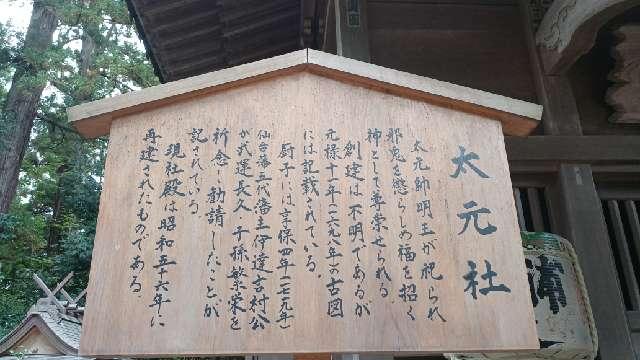 太元社
太元帥明王が祀られ
邪鬼を懲らしめ福を招く
神として尊崇せられる
創建は不明であるが
元禄十一年(一六九八年)の古図
には記載されている。
厨子には享保四年(一七一九年)
仙台藩五代藩主伊達吉村公
が武運長久 子孫繁栄を
祈念し勧請したことが
記されている。
現社殿は昭和五十六年に
再建されたものである
浦